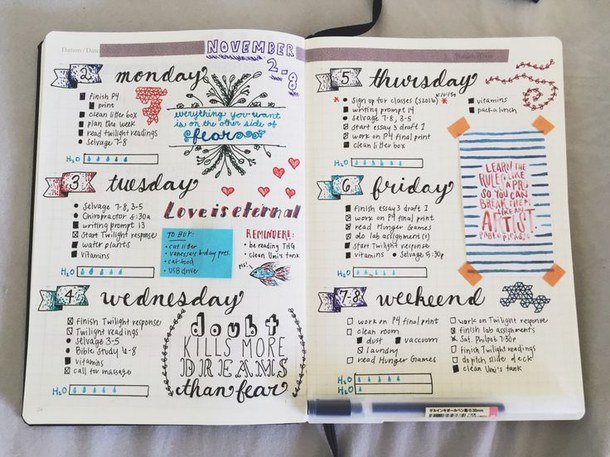 Datum / Date
NOVEMBER
2-8
2 monday
finish P4
print
clean litter box
plan the week
read twilight readings
Selvage 7-8
H2O
everything you want
is on the other side of
fear
3 tuesday
Selvage 7-8, 3-5
Chiropractor 6:30a
writing prompt 13
Start Twilight response
water plants
vitamins
H2O
Love is eternal
TO BUY:
cat litter
vanessa's bday pres.
cat food
USB drive
REMINDERS:
be reading THG
clean Uni's tank
4 wednesday
finish Twilight response
Twilight readings
Selvage 3-5
Bible Study 6-8
vitamins
call for massage
H2O
doubt
KILLS MORE
DREAMS
than fear
24
5 thursday
Sign up for classes
writing prompt 14
Selvage 7-8, 3-5
start essay 3 draft 1
work on P4 final print
clean litter box
vitamins
pack a lunch
H2O
LEARN THE
RULES LIKE
A PRO,
SO YOU CAN
BREAK THEM
LIKE AN
ARTIST.
PABLO PICASSO
6 friday
finish essay 3 draft 1
work on P4 final print
read Hunger Games
do lab assignment (1)
Start Twilight response
vitamins • Selvage 5:30p
H2O
7-8 weekend
work on P4 final print
clean room
dust
vacuum
laundry
read Hunger Games
work on Twilight response
finish lab assignments
finish Twilight readings
clean Uni's tank
H2O
H2O